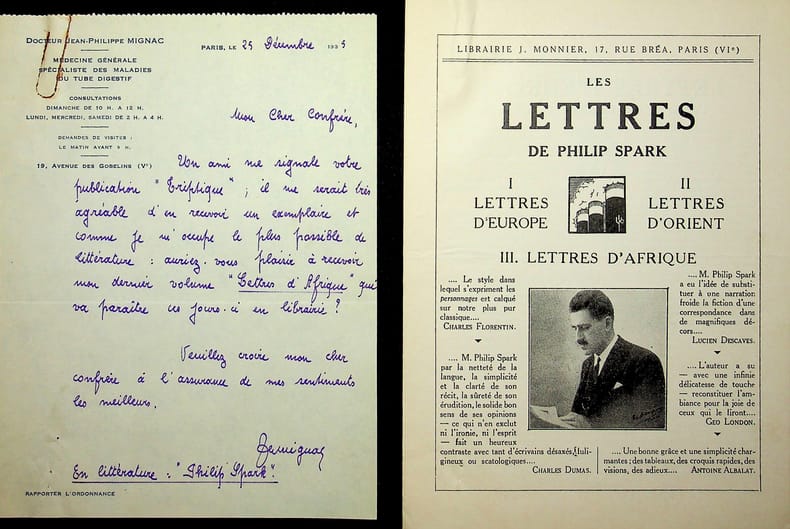 DOCTEUR JEAN-PHILIPPE MIGNAC
MÉDECINE GÉNÉRALE
SPÉCIALISTE DES MALADIES
DU TUBE DIGESTIF
CONSULTATIONS
DIMANCHE DE 10 H. A 12 H.
LUNDI, MERCREDI, SAMEDI DE 2 H. A 4 H.
DEMANDES DE VISITES :
LE MATIN AVANT 9 H.
19, AVENUE DES GOBELINS (Vᵉ)
PARIS, LE 25 Décembre 1935
Mon Cher Confrère,
Un ami me signale votre
publication "Triptique" ; il me serait très
agréable d'en recevoir un exemplaire et
comme je m'occupe le plus possible de
littérature : auriez-vous plaisir à recevoir
mon dernier volume "Lettres d'Afrique" qui
va paraître ces jours-ci en librairie ?
Veuillez croire mon cher
confrère à l'assurance de mes sentiments
les meilleurs.
Jpmignac
En littérature : "Philip Spark".
RAPPORTER L'ORDONNANCE
LIBRAIRIE J. MONNIER, 17, RUE BRÉA, PARIS (VIᵉ)
LES
LETTRES
DE PHILIP SPARK
I
LETTRES
D'EUROPE
II
LETTRES
D'ORIENT
III. LETTRES D'AFRIQUE
.... Le style dans
lequel s'expriment les
personnages est calqué
sur notre plus pur
classique....
CHARLES FLORENTIN.
.... M. Philip Spark
par la netteté de la
langue, la simplicité
et la clarté de son
récit, la sûreté de son
érudition, le solide bon
sens de ses opinions
— ce qui n'en exclut
ni l'ironie, ni l'esprit
— fait un heureux
contraste avec tant d'écrivains désaxés, fuli-
gineux ou scatologiques....
CHARLES DUMAS.
.... M. Philip Spark
a eu l'idée de substi-
tuer à une narration
froide la fiction d'une
correspondance dans
de magnifiques dé-
cors....
LUCIEN DESCAVES.
....L'auteur a su
— avec une infinie
délicatesse de touche
— reconstituer l'am-
biance pour la joie de
ceux qui le liront....
GEO LONDON.
.... Une bonne grâce et une simplicité char-
mantes ; des tableaux, des croquis rapides, des
visions, des adieux.... ANTOINE ALBALAT.